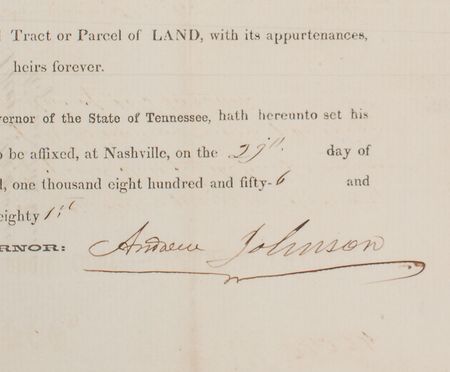 Tract or Parcel of LAND, with its appurtenances,
heirs forever.
ernor of the State of Tennessee, hath hereunto set his
o be affixed, at Nashville, on the day of
, one thousand eight hundred and fifty-6 and
eighty 1st
RNOR: Andrew Johnson